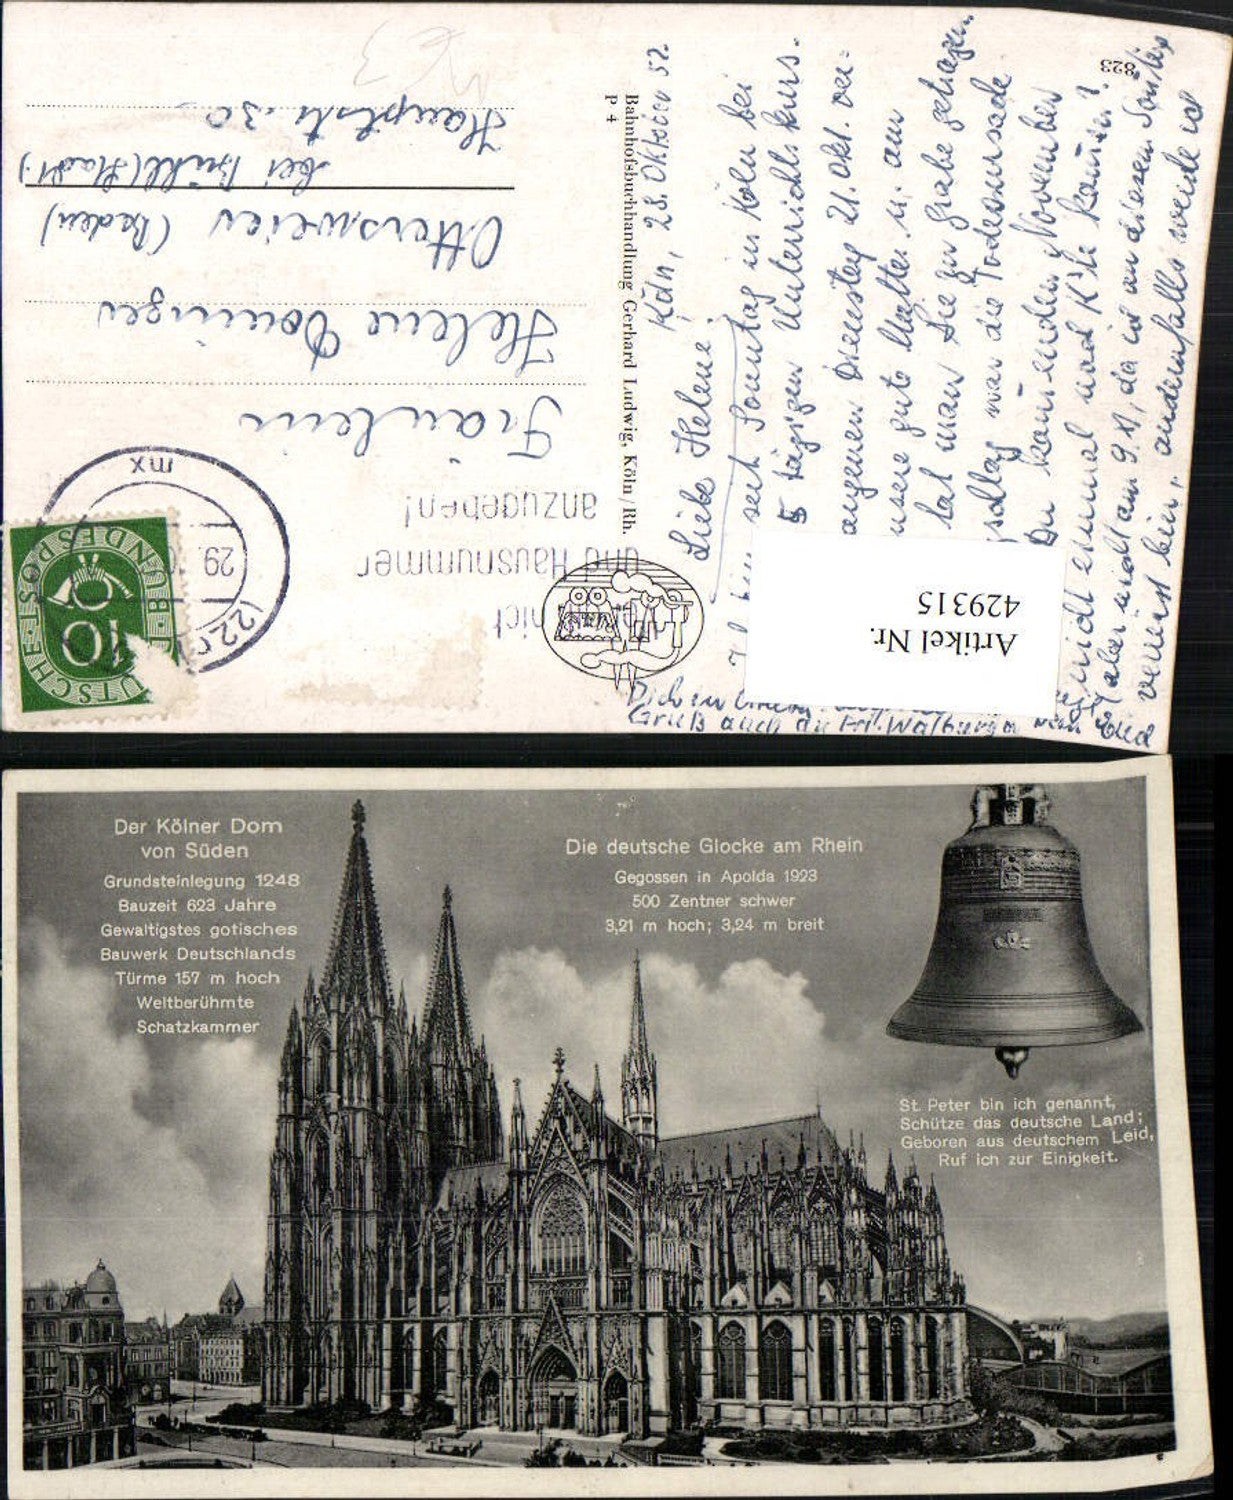 Köln, 28. Oktober 52.
Liebe Helene!
seit Sonntag in Köln bei
5 tägigen Unterrichtskurs.
angenen Dienstag 21. Okt. ver-
unsere gute Mutter u. am
hat man Sie zu Grabe getragen.
gschlag war die Todesursache.
Du kommenden November
nicht einmal nach K'he kommen?
aber nicht am 9.11, da ich an diesem Sonntag
verreist bin, andernfalls werde ich
Gruß auch an Frl. Walburga
823
Bahnhofsbuchhandlung Gerhard Ludwig, Köln / Rh.
P 4
nicht
und Hausnummer
anzugeben!
(22c)
29.
mx
DEUTSCHE BUNDESPOST
10
Fräulein
Helene Doninger
Ottersweier (Baden)
bei Brühl (Stadt)
Hauptstr. 30
Artikel Nr.
429315
Der Kölner Dom
von Süden
Grundsteinlegung 1248
Bauzeit 623 Jahre
Gewaltigstes gotisches
Bauwerk Deutschlands
Türme 157 m hoch
Weltberühmte
Schatzkammer
Die deutsche Glocke am Rhein
Gegossen in Apolda 1923
500 Zentner schwer
3,21 m hoch; 3,24 m breit
St. Peter bin ich genannt,
Schütze das deutsche Land;
Geboren aus deutschem Leid,
Ruf ich zur Einigkeit.